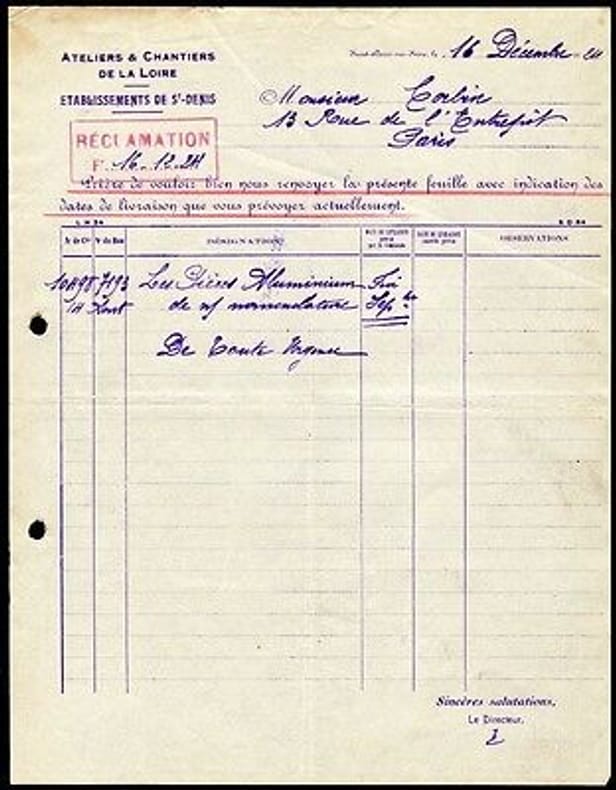 ATELIERS & CHANTIERS
DE LA LOIRE
ETABLISSEMENTS DE St-DENIS
16 Décembre 24
Monsieur Corbin
13 Rue de l'Entrepôt
Paris
RÉCLAMATION
F. 16.12.24
Prière de vouloir bien nous renvoyer la présente feuille avec indication des
dates de livraison que vous prévoyez actuellement.
DÉSIGNATION OBSERVATIONS
10498 7193 Les Pièces Aluminium Fin
14 Août de n/ nomenclature Sepbre
De Toute Urgence
Sincères salutations,
Le Directeur,